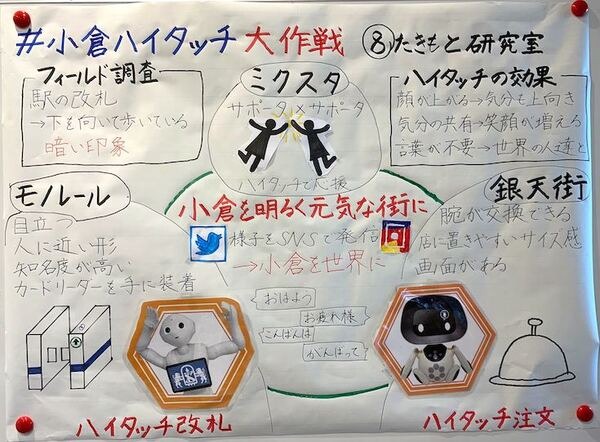 #小倉ハイタッチ大作戦 ⑧たきもと研究室
フィールド調査
駅の改札
→下を向いて歩いている
暗い印象
ミクスタ
サポータ×サポータ
ハイタッチで応援
ハイタッチの効果
顔が上がる→気分も上向き
気分の共有→笑顔が増える
言葉が不要→世界の人達と
モノルール
目立つ
人に近い形
知名度が高い
カードリーダーを手に装着
小倉を明るく元気な街に
様子をSNSで発信
→小倉を世界に
おはよう
お疲れ様
こんばんは
がんばって
銀天街
腕が交換できる
店に置きやすいサイズ感
画面がある
ハイタッチ改札
ハイタッチ注文